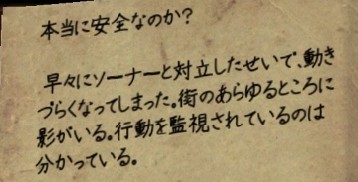 本当に安全なのか?
早々にソーナーと対立したせいで、動き
づらくなってしまった。街のあらゆるところに
影がいる。行動を監視されているのは
分かっている。